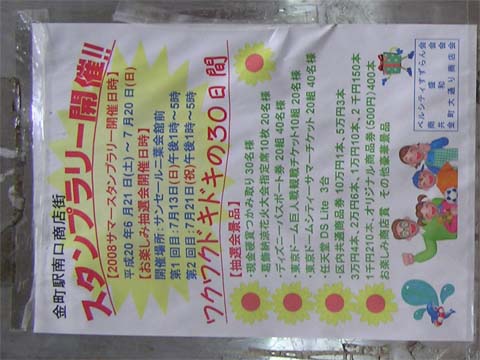 金町駅南口商店街
スタンプラリー開催!!
【2008サマースタンプラリー開催日時】
平成20年6月21日(土)～7月20日(日)
【お楽しみ抽選会開催日時】
開催場所:ヤンセール二葉会館前
第1回目:7月13日(日)午後1時～5時
第2回目:7月21日(祝)午後1時～5時
ワクワクドキドキの30日間
【抽選会景品】
・現金硬貨つかみ取り 30名様
・葛飾納涼花火大会指定席10枚 20名様
・ディズニーパスポート券 20組 40名様
・東京ドーム巨人戦観戦チケット10組 20名様
・東京ドームシティーサマーチケット 20組 40名様
・任天堂DS Lite 3台
・区内共通商品券 10万円1本、5万円3本
3万円4本、2万円6本、1万円10本、2千円150本
1千円210本、オリジナル商品券(500円)400本
お楽しみ商店賞 その他豪華景品
ベルシティすずらん会
商盛会
共和会
金町大通り商店会